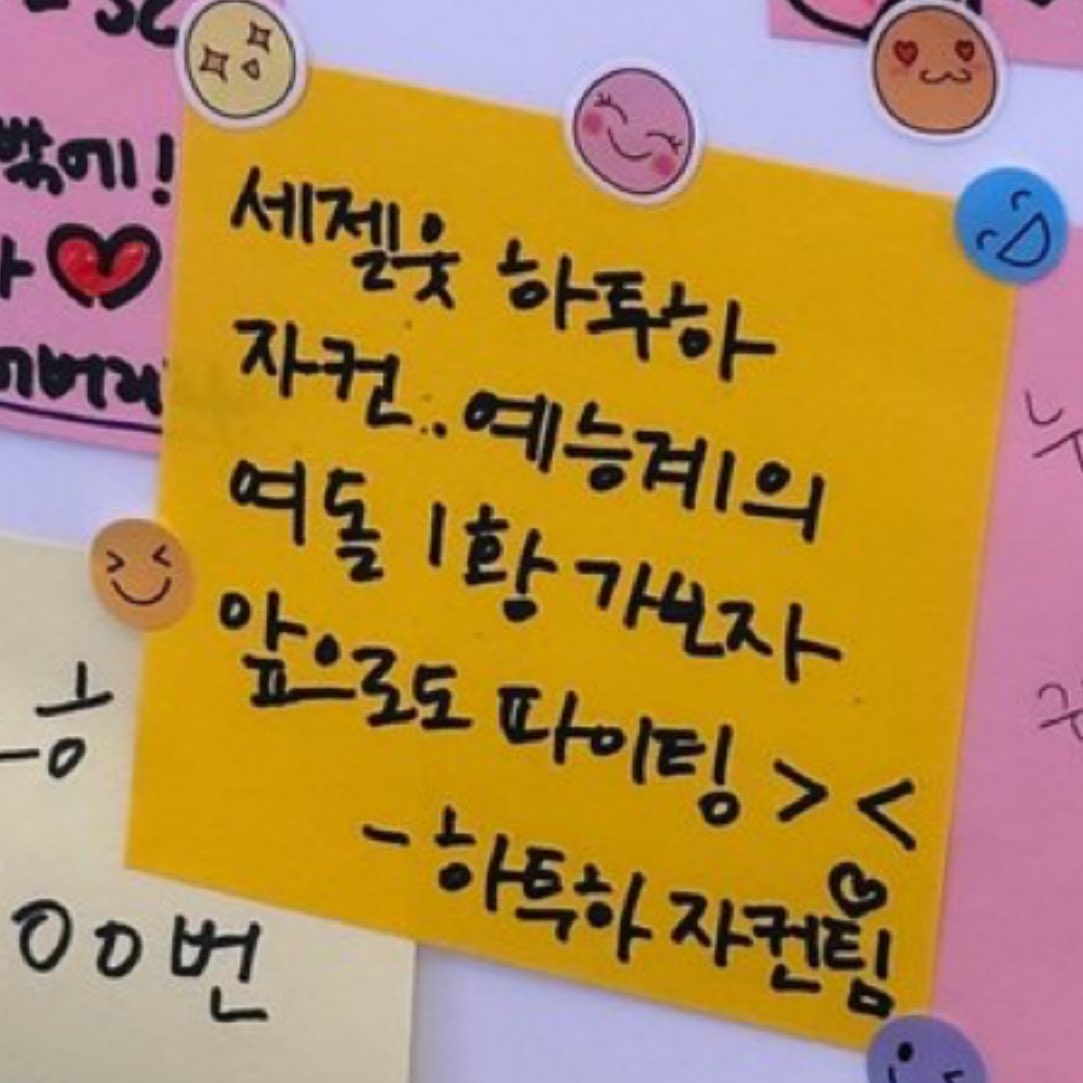 세젤웃 하투하
자컨..예능계의
여돌 1황 가보자
앞으로도 파이팅 > <
- 하투하 자컨팀
밖에!
00번